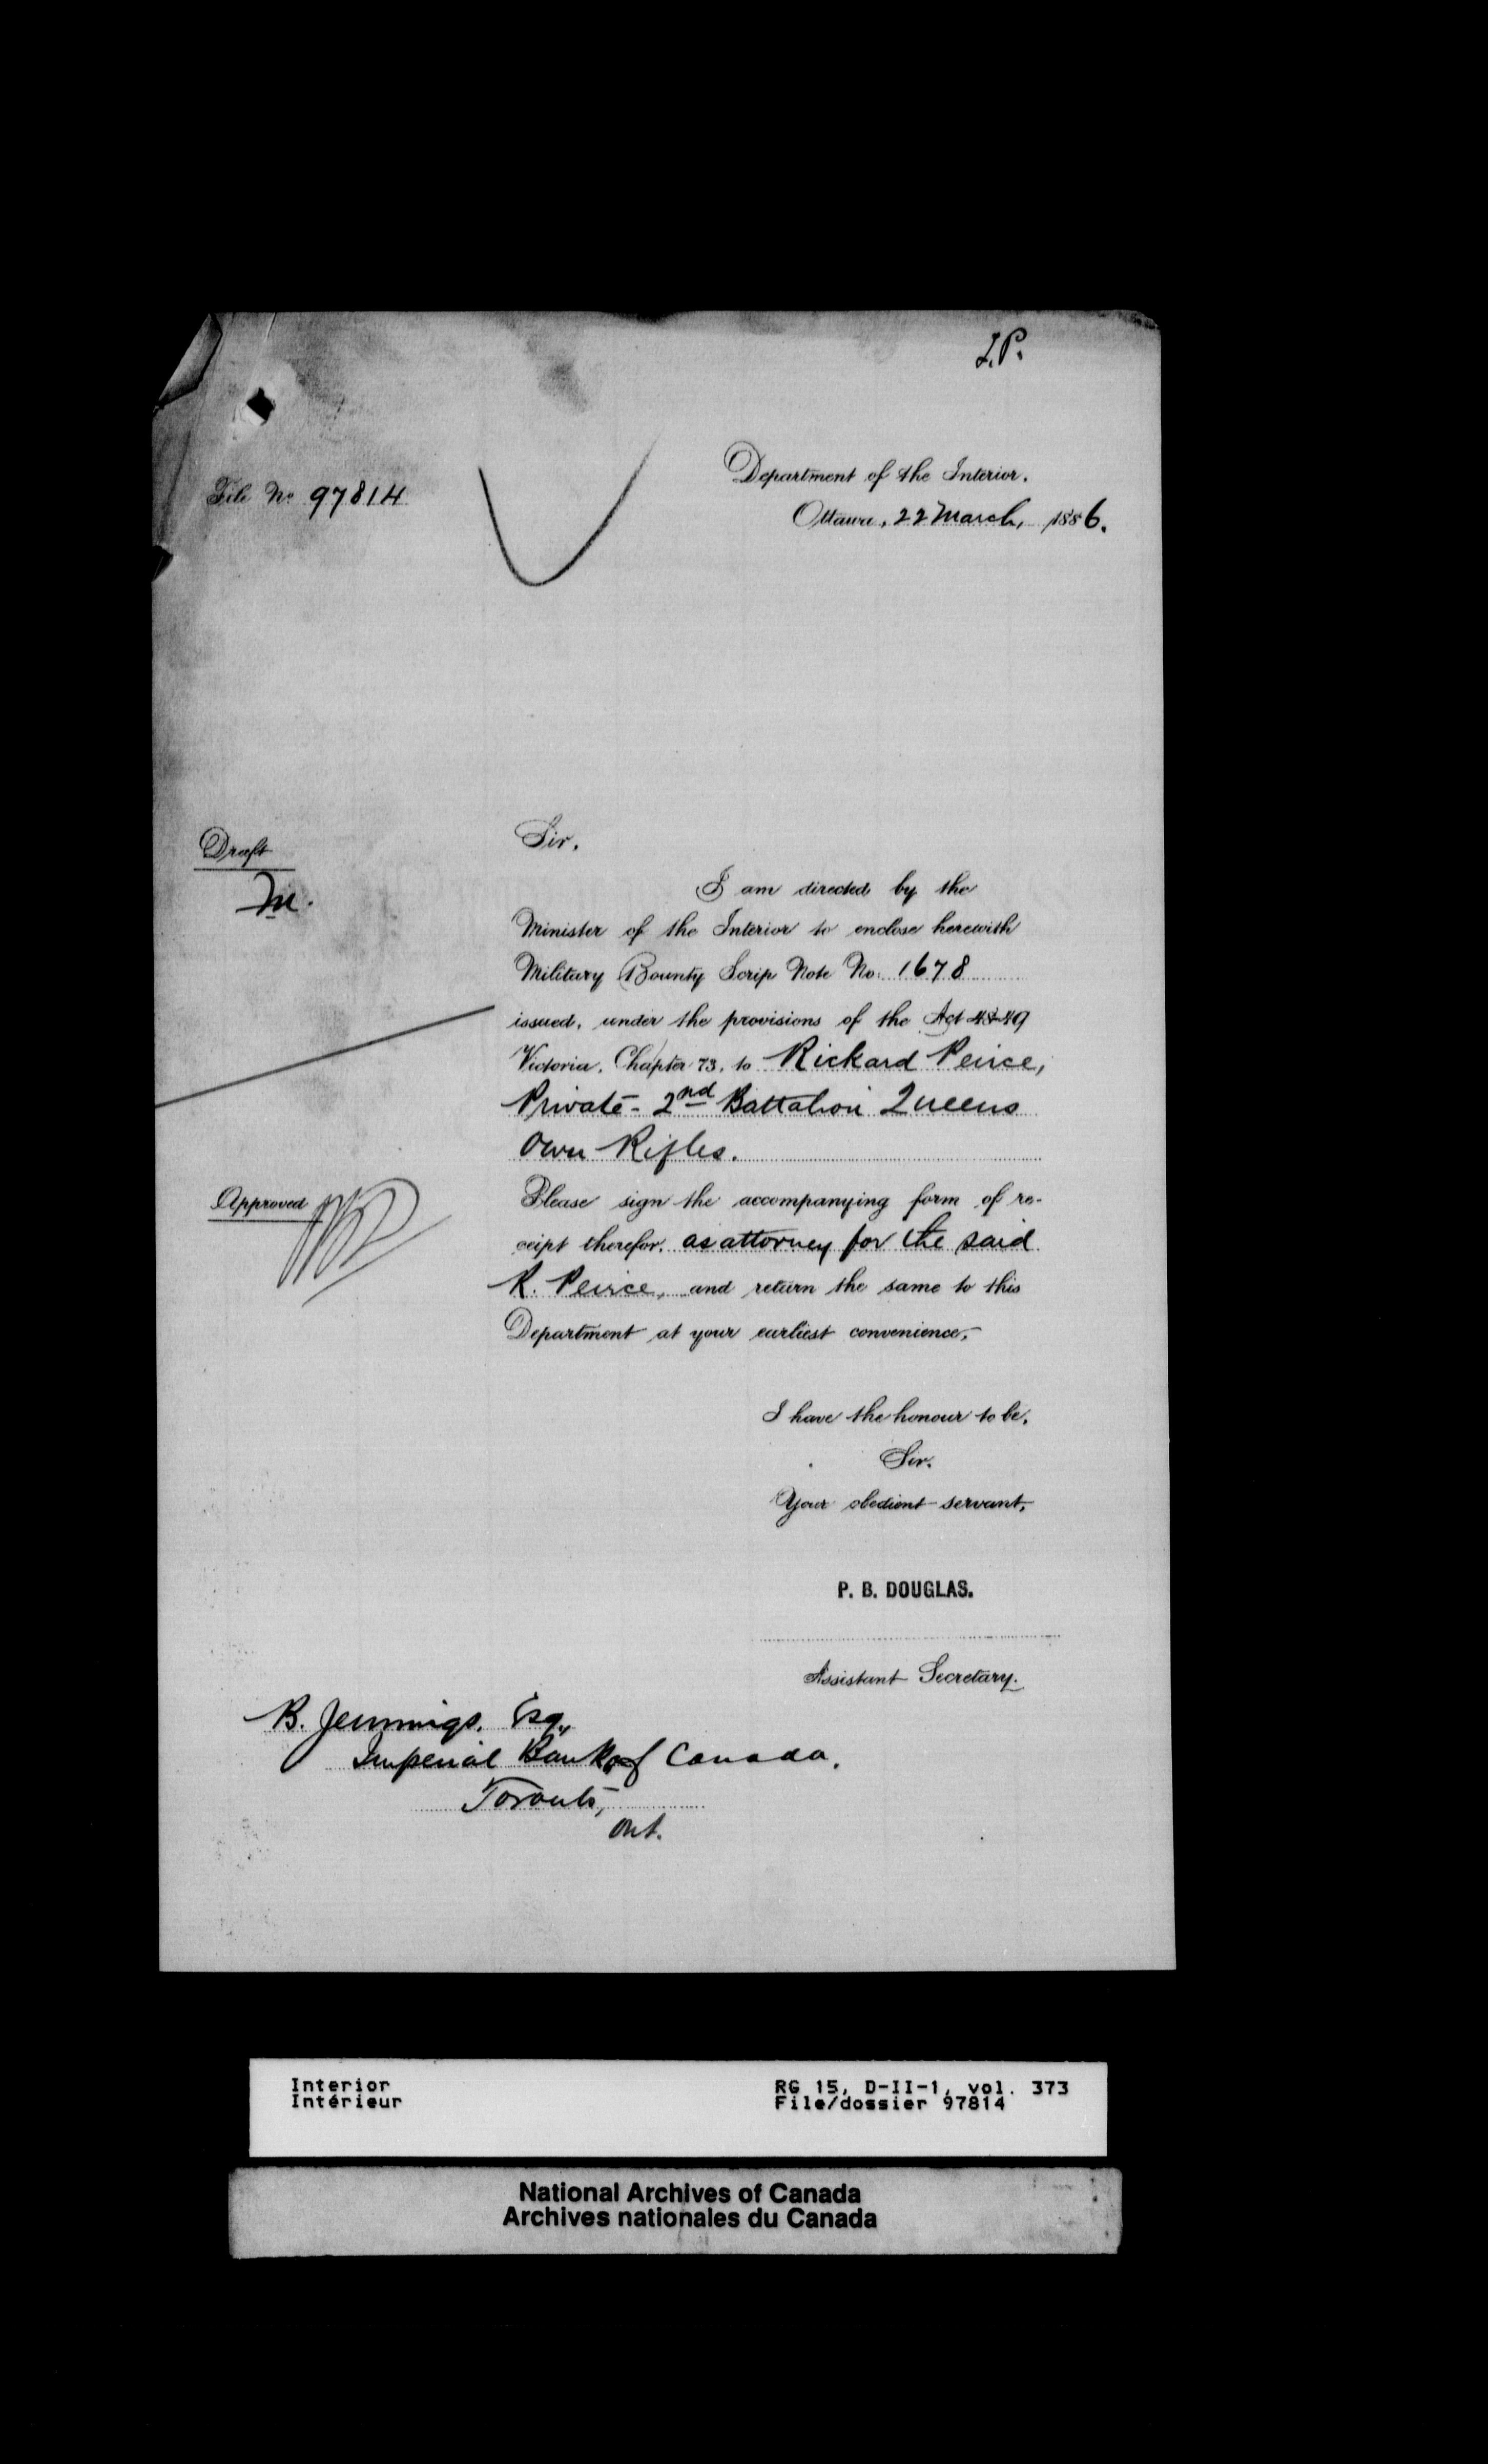 L.P.
Department of the Interior.
File No 97814
Ottawa, 22 March, 1886.
Draft
M.
Sir,
I am directed by the
Minister of the Interior to enclose herewith
Military Bounty Scrip Note No. 1678
issued, under the provisions of the Act 48-49
Victoria, Chapter 73, to Rickard Peirce,
Private - 2nd Battalion Queens
Own Rifles.
Approved
Please sign the accompanying form of re-
ceipt therefor, as attorney for the said
R. Peirce, and return the same to this
Department at your earliest convenience,
I have the honour to be,
Sir,
Your obedient servant,
P. B. DOUGLAS.
Assistant Secretary.
B. Jennings, Esq.,
Imperial Bank of Canada,
Toronto,
Ont.
Interior
Intérieur
RG 15, D-II-1, vol. 373
File/dossier 97814
National Archives of Canada
Archives nationales du Canada